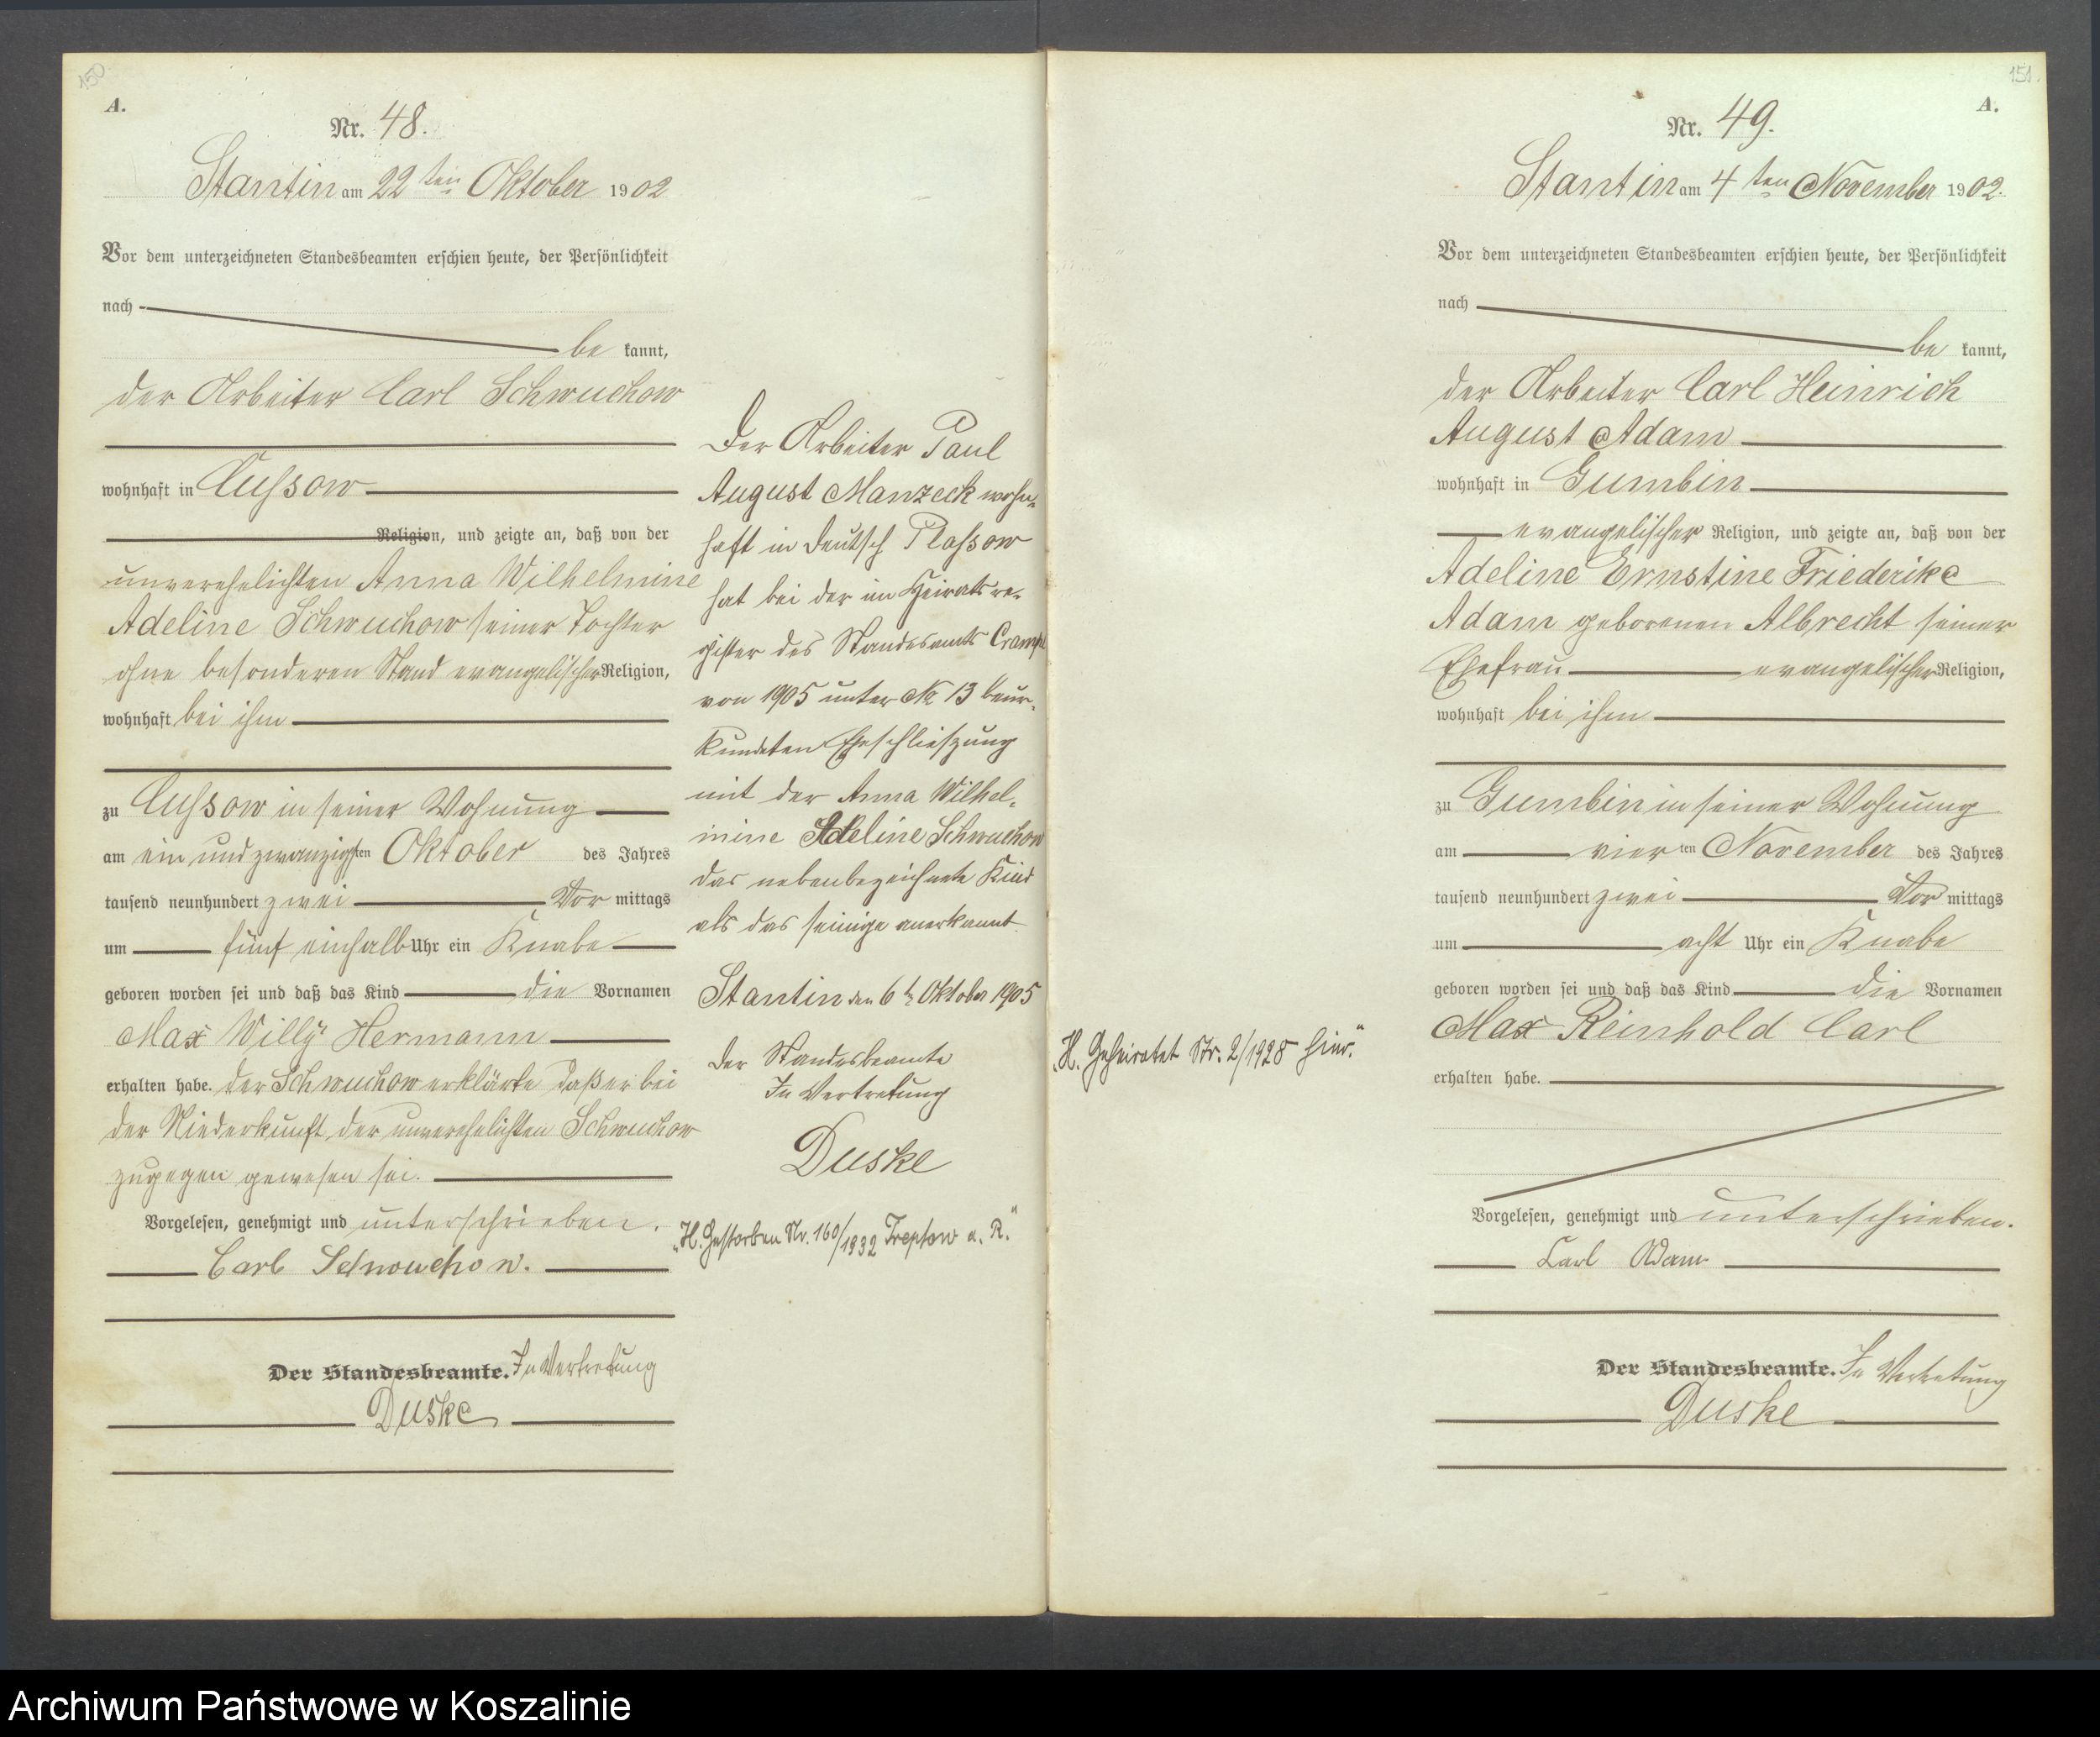 150
A.
Nr. 48.
Stantin am 22 ten Oktober 1902
Vor dem unterzeichneten Standesbeamten erschien heute, der Persönlichkeit
nach
be kannt,
der Arbeiter Carl Schwuchow
wohnhaft in Cussow
Religion, und zeigte an, daß von der
unverehelichten Anna Wilhelmine
Adeline Schwuchow seiner Tochter
ohne besonderen Stand evangelischer Religion,
wohnhaft bei ihm
zu Cussow in seiner Wohnung
am ein und zwanzigsten Oktober des Jahres
tausend neunhundert zwei Vor mittags
um fünf einhalb Uhr ein Knabe
geboren worden sei und daß das Kind die Vornamen
Max Willy Hermann
erhalten habe. Der Schwuchow erklärte daß er bei
der Niederkunft der unverehelichten Schwuchow
zugegen gewesen sei.
Vorgelesen, genehmigt und unterschrieben.
Carl Schwuchow.
Der Standesbeamte. In Vertretung
Duske
Der Arbeiter Paul
August Manzeck wohn-
haft in Deutsch Plassow
hat bei der im Heiratsre-
gister des Standesamts Crampe
von 1905 unter No 13 beur-
kundeten Eheschließung
mit der Anna Wilhel-
mine Adeline Schwuchow
das nebenbezeichnete Kind
als das seinige anerkannt.
Stantin den 6 t Oktober 1905
Der Standesbeamte
In Vertretung
Duske
„H. Gestorben Nr. 160/1932 Treptow a. R."
151.
A.
Nr. 49.
Stantin am 4 ten November 1902.
Vor dem unterzeichneten Standesbeamten erschien heute, der Persönlichkeit
nach
be kannt,
der Arbeiter Carl Heinrich
August Adam
wohnhaft in Gumbin
evangelischer Religion, und zeigte an, daß von der
Adeline Ernstine Friederike
Adam geborenen Albrecht seiner
Ehefrau evangelischer Religion,
wohnhaft bei ihm
zu Gumbin in seiner Wohnung
am vier ten November des Jahres
tausend neunhundert zwei Vor mittags
um acht Uhr ein Knabe
geboren worden sei und daß das Kind die Vornamen
Max Reinhold Carl
erhalten habe.
Vorgelesen, genehmigt und unterschrieben.
Carl Adam
Der Standesbeamte. In Vertretung
Duske
„H. Geheiratet Nr. 2/1928 hier."
Archiwum Państwowe w Koszalinie